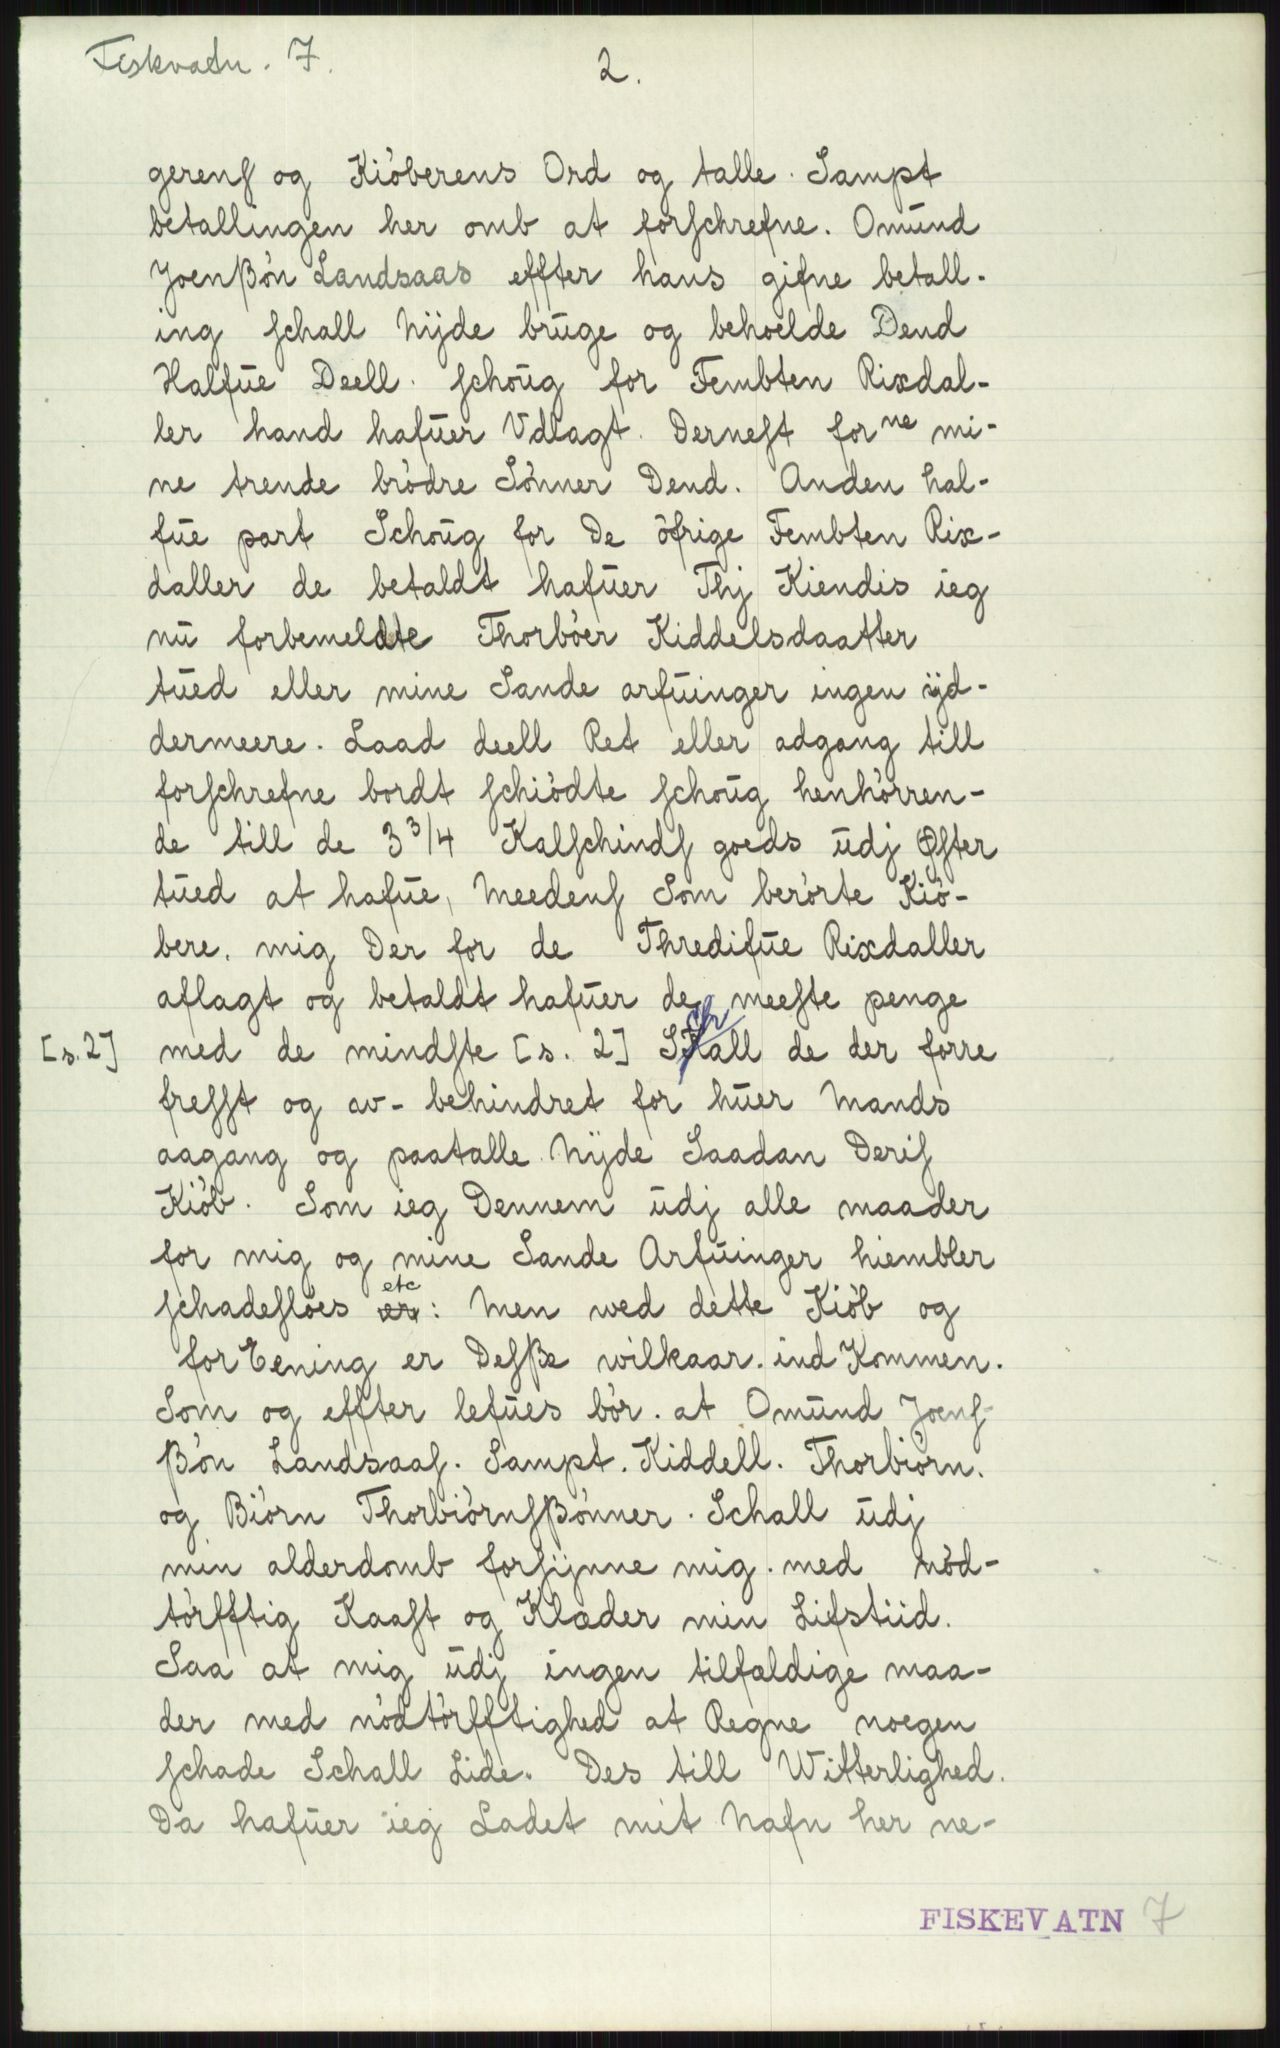 Fiskvatn. 7.
2.
gerenſ og Kiöberens Ord og talle. Sampt
betallingen her omb at forſchrefne. Omŭnd
Joenßön Landsaas effter hans gifne betall-
ing ſchall Nÿde brŭge og behoelde Dend
Halfŭe Deell. ſchoŭg for Fembten Rixdal-
ler hand hafŭer Vdlagt. Derneſt for ne mi-
ne trende brödre Sönner Dend. Anden hal-
fŭe part Schoŭg for De öfrige Fembten Rix-
daller de betaldt hafŭer Thj Kiendis ieg
nŭ forbemeldte Thorböer Kiddelsdaatter
tŭed eller mine Sande arfŭinger ingen ÿd-
dermeere. Laad deell Ret eller adgang till
forſchrefne bordt ſchiödte ſchoŭg henhörren-
de till de 3 3/4 Kalſchindſ goeds ŭdj Øfter
tŭed at hafŭe, Meedenſ Som berörte Kiö-
bere. mig Der for de Thredifŭe Rixdaller
aflagt og betaldt hafŭer de meeſte penge
[s. 2] med de mindſte [s. 2] Schall de der forre
freſſt og av- behindret for hŭer Mands
aagang og paatalle Nÿde Saadan Deriſ
Kiöb. Som ieg Dennem ŭdj alle maader
for mig og mine Sande Arfŭinger hiembler
ſchadeſlöes etc: Men wed dette Kiöb og
forEening er Deſße wilkaar. ind Kommen.
Som og effter lefŭes bör. at Omŭnd Joenſ-
ßön Landsaaſ. Sampt. Kiddell. Thorbiörn.
og Biörn Thorbiörnſßönner. Schall ŭdj
min alderdomb forſÿnne mig. med nöd-
törfftig Kaaſt og Klæder min Lifstiid.
Saa at mig ŭdj ingen tilfældige maa-
der med nödtörfftighed at Regne noegen
ſchade Schall Lide. Des till Witterlighed.
Da hafŭer ieg Ladet mit Nafn her ne-
FISKEVATN 7